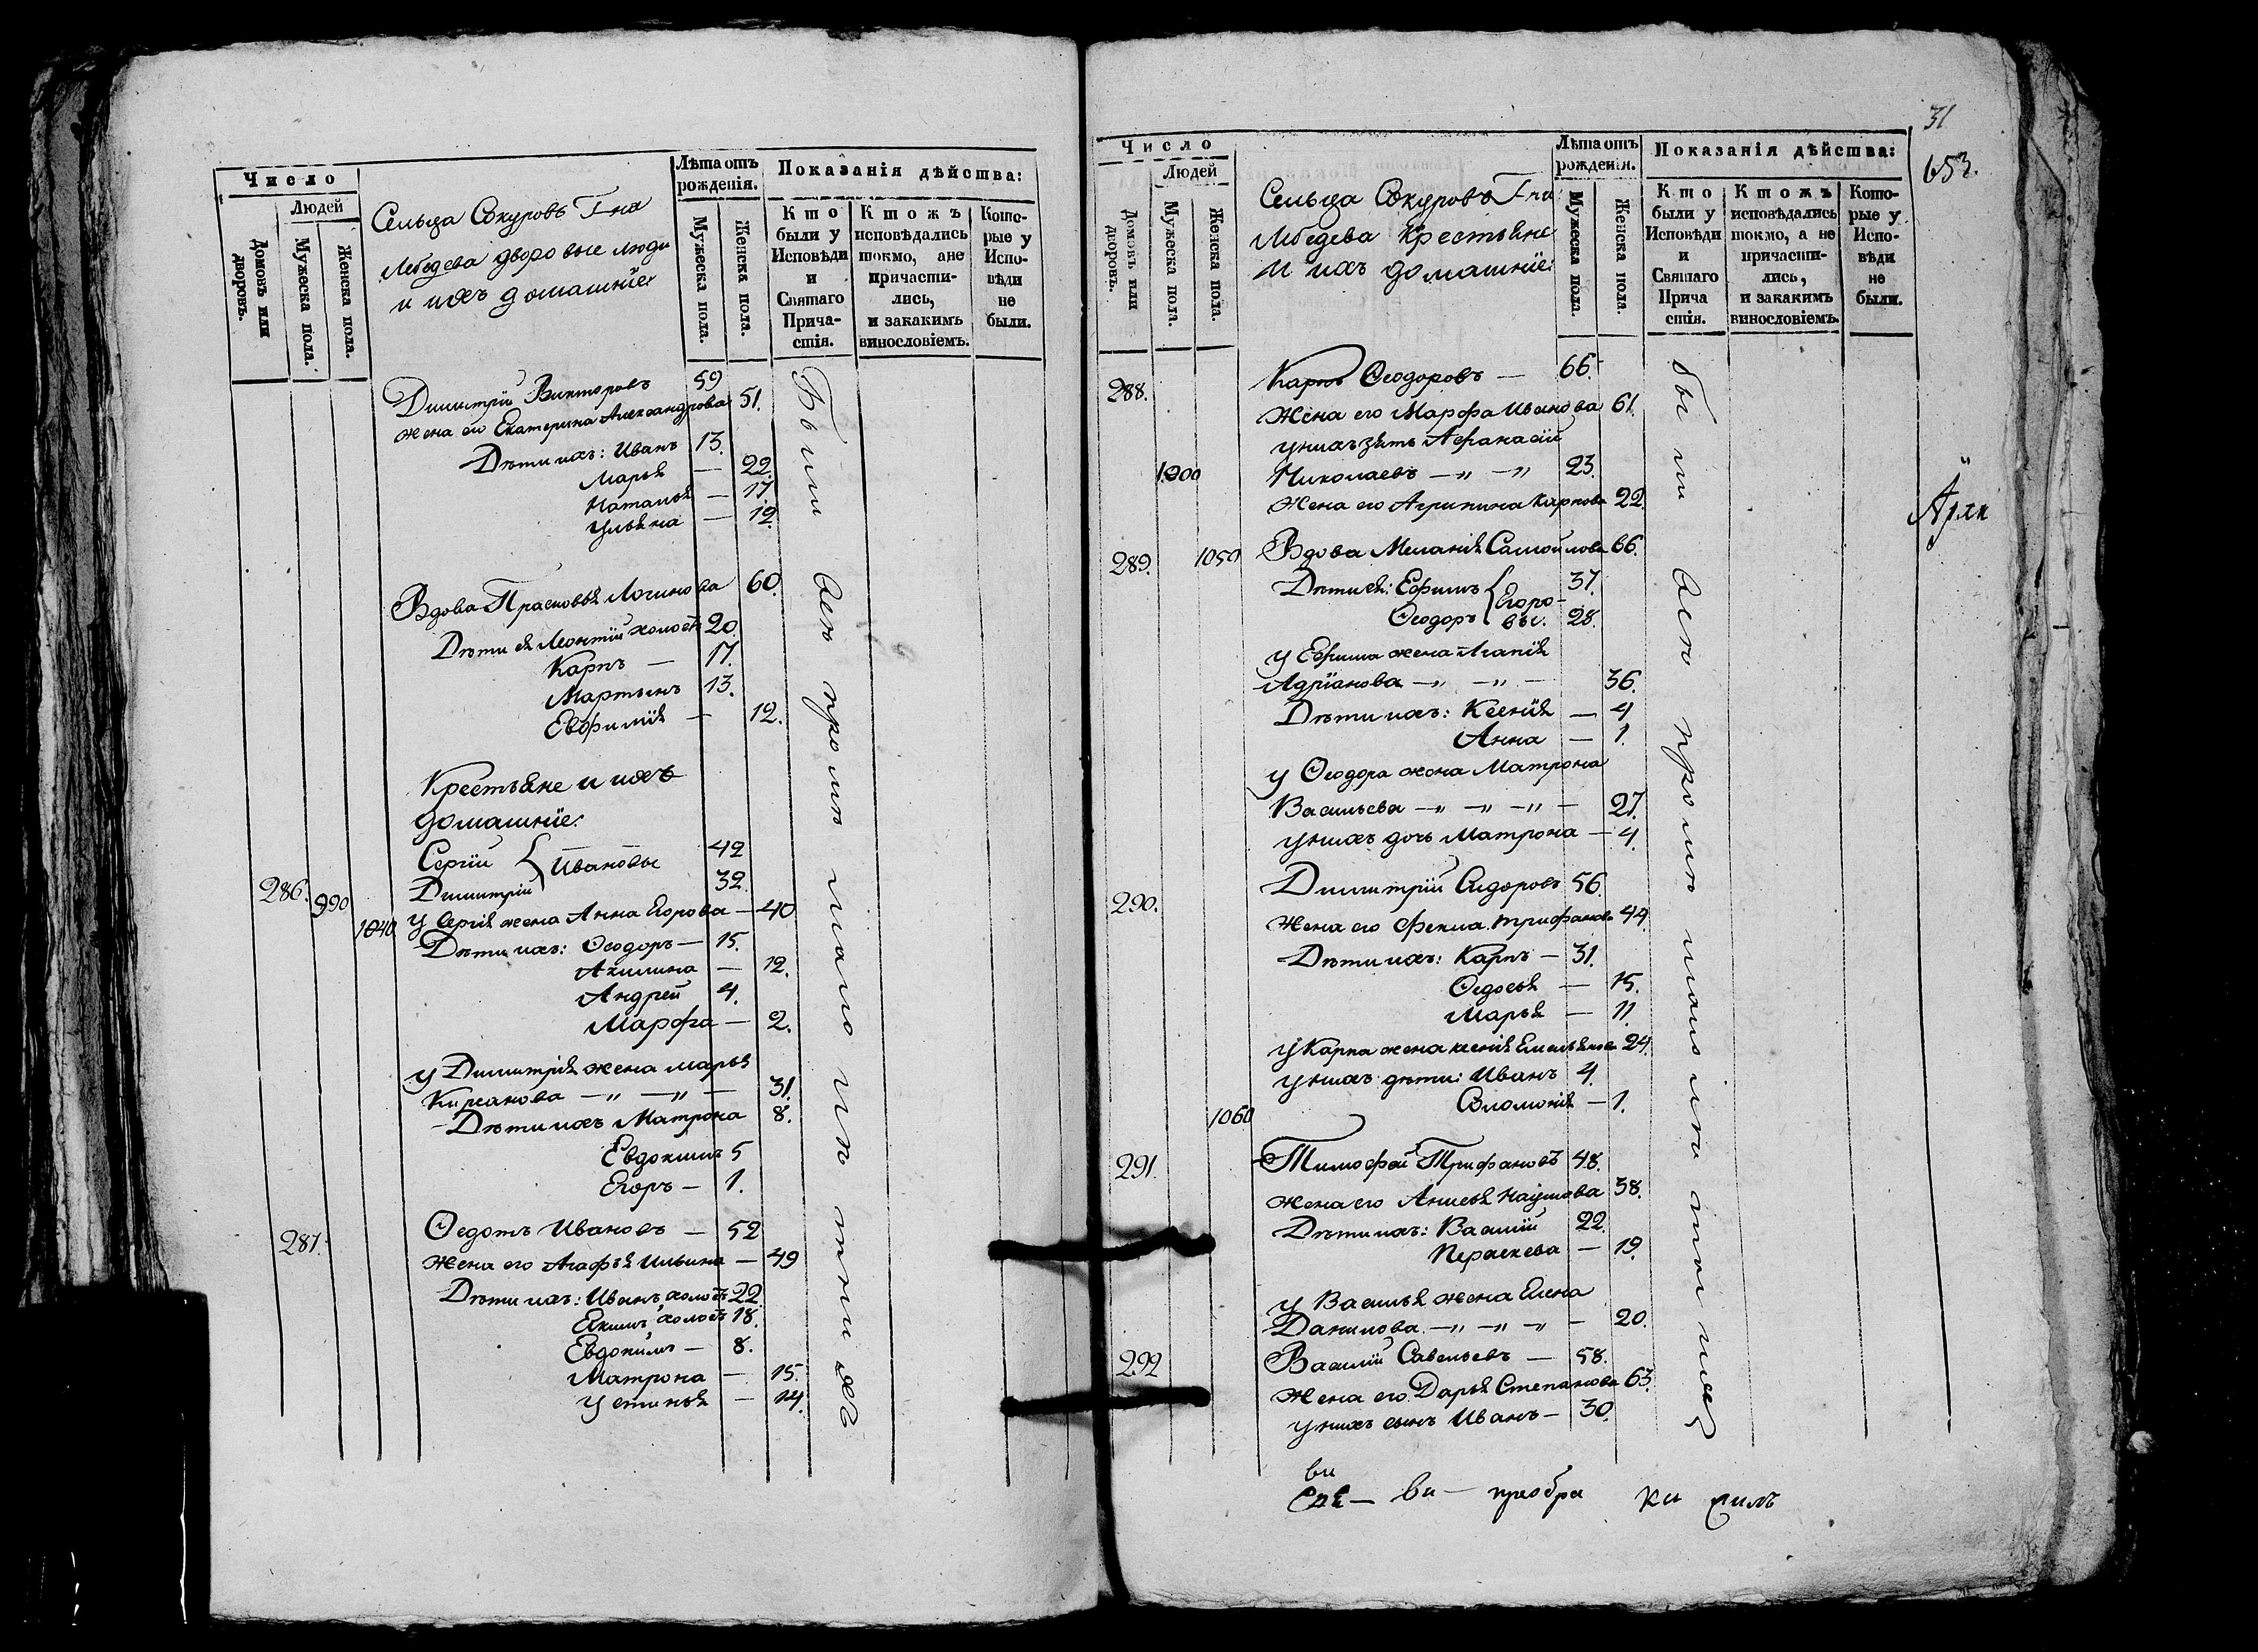 Число
Людей
Домовъ или дворовъ.
Мужеска пола.
Женска пола.
Сельца Сокуровъ Гна
Лебедева дворовые люди
и ихъ домашніе
Лѣта отъ рожденія.
Мужеска пола.
Женска пола.
Показанія дѣйства:
Кто были у Исповѣди и Святаго Прича-стія.
Ктожъ исповѣдались токмо, ане причасти-лись, и закакимъ винословіемъ.
Кото-рые у Испо-вѣди не были.
Димитрій Викторовъ 59
жена его Екатерина Александрова 51.
Дѣти ихъ: Иванъ 13.
Марья — 22.
Наталья — 17.
Ульяна — 12.
Вдова Прасковья Логинова 60.
Дѣти ея Леонтій холостъ 20.
Карпъ — 17.
Мартынъ 13.
Евфимія — 12.
Крестьяне и ихъ
домашніе:
Сергій { Ивановы 42
286. 990 Димитрій 32.
1040 у Сергія жена Анна Егорова — 40
Дѣти ихъ: Ѳеодоръ — 15.
Акилина — 12.
Андрей 4.
Марфа — 2.
у Димитрія жена Марья
Кирсанова —„— —„— — 31.
Дѣти ихъ Матрона 8.
Евдокимъ 5
Егоръ — 1.
287. Ѳедотъ Ивановъ — 52
жена его Агафья Ильина — 49
Дѣти ихъ: Иванъ холостъ 22.
Екимъ холостъ 18.
Евдокимъ — 8.
Матрона — 15.
Устинья — 14.
Были
31
653.
Число
Людей
Домовъ или дворовъ.
Мужеска пола.
Женска пола.
Сельца Сокуровъ Гна
Лебедева Крестьяне
и ихъ домашніе:
Лѣта отъ рожденія.
Мужеска пола.
Женска пола.
Показанія дѣйства:
Кто были у Исповѣди и Святаго Прича стія.
Ктожъ исповѣдались токмо, а не причасти-лись, и закакимъ винословіемъ.
Кото-рые у Испо-вѣди не были.
288. Карпъ Ѳеодоровъ — 66.
Жена его Марфа Иванова 61.
у нихъ зять Афанасій
1200 Николаевъ —„ —„ 23.
Жена его Агрипина Карпова 22.
289. 1050 Вдова Меланія Самойлова 66.
Дѣти ея: Ефимъ { Егоро- 37.
Ѳеодоръ { вы. 28.
у Ефима жена Агапія
Адріанова —„ —„ — 36.
Дѣти ихъ: Ксенія — 4
Анна — 1.
у Ѳеодора жена Матрона
Васильева —„ —„ —„ — 27.
у нихъ дочь Матрона — 4.
290. Димитрій Сидоровъ 56.
Жена его Фекла Трифанова 44.
Дѣти ихъ: Карпъ — 31.
Ѳедосья — 15.
Марья — 11
у Карпа жена Ксенія Емельянова 24.
у нихъ дѣти: Иванъ 4.
1060 Соломонія — 1.
291. Тимофей Трифановъ 48.
жена его Анисья Наумова 38.
Дѣти ихъ: Василій 22.
Параскева — 19.
у Василья жена Елена
Данилова —„ —„ —„ — 20.
292 Василій Савельевъ — 58.
Жена его Дарья Степанова 63.
у нихъ сынъ Иванъ — 30.
были